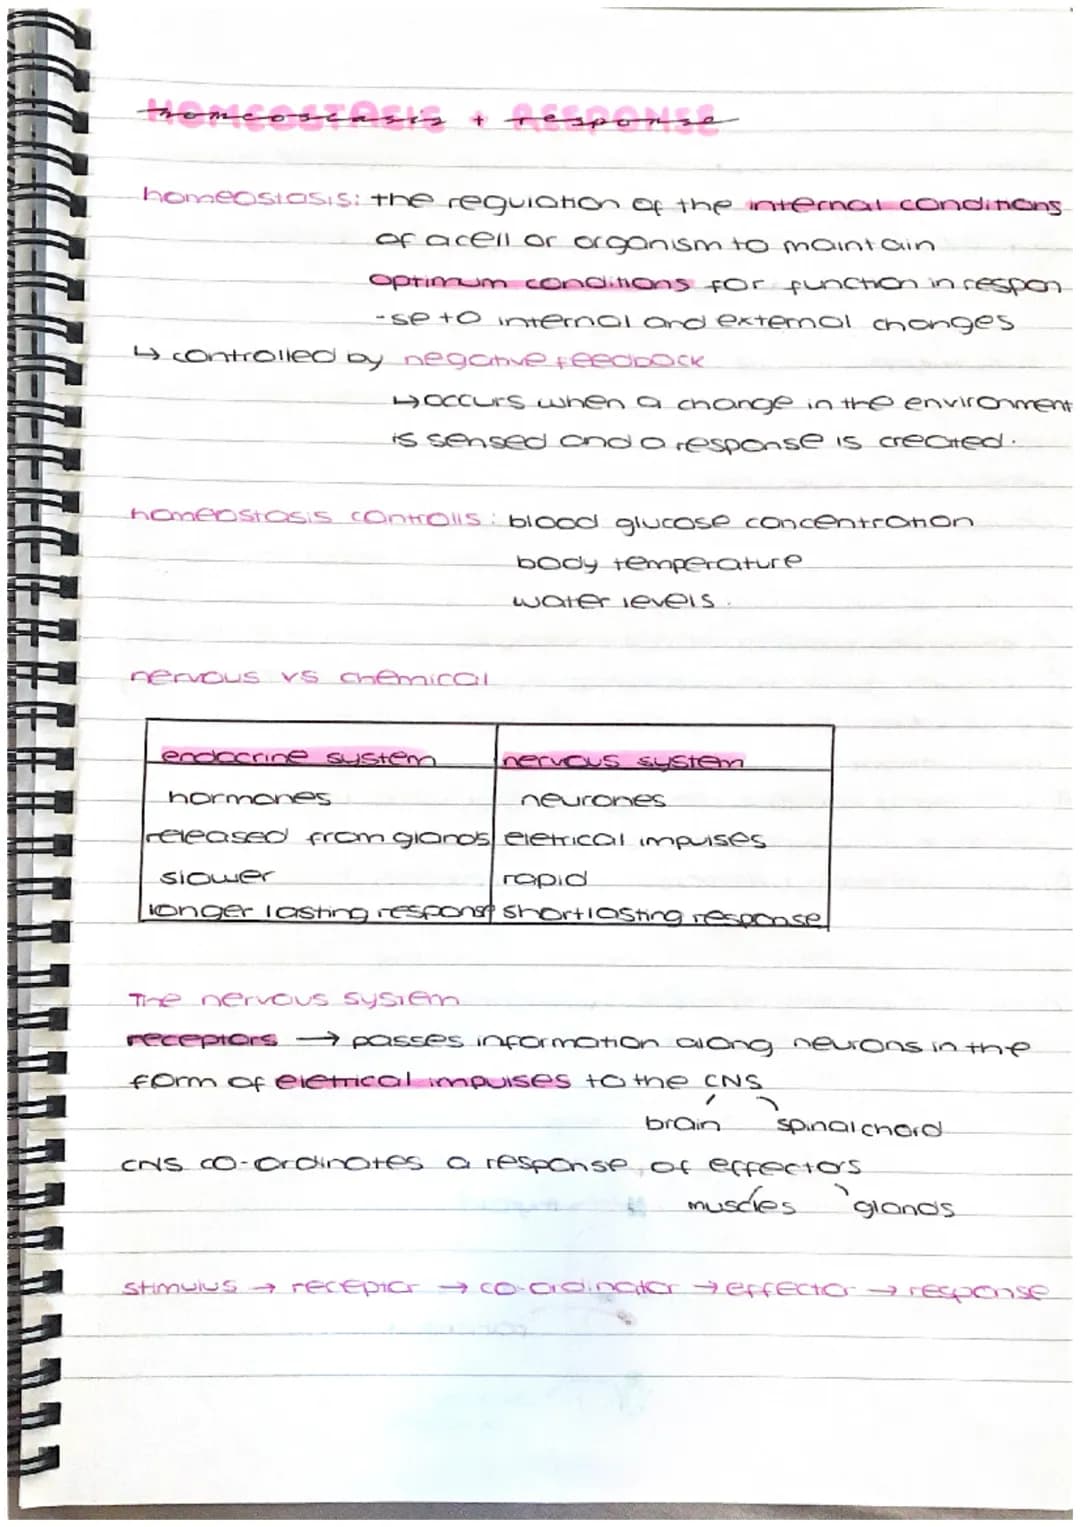 HOMEOSTASIS + RESPONSE
homeostasis + response
homeostasis: the regulation of the internal conditions
of a cell or organism to maintain
optimum conditions for function in respon
-se to internal and external changes
↳ controlled by negative feedback
↳ occurs when a change in the environment
is sensed and a response is created.
homeostasis controlls: blood glucose concentration
body temperature
water levels.
nervous vs chemical
endocrine system nervous system
hormones neurones
released from glands eletrical impulses
slower rapid
longer lasting response short lasting response
The nervous system
receptors → passes information along neurons in the
form of eletrical impulses to the CNS
brain spinal chord
CNS co-ordinates a response of effectors
muscles glands
stimulus → receptor → co-ordinator → effector → response